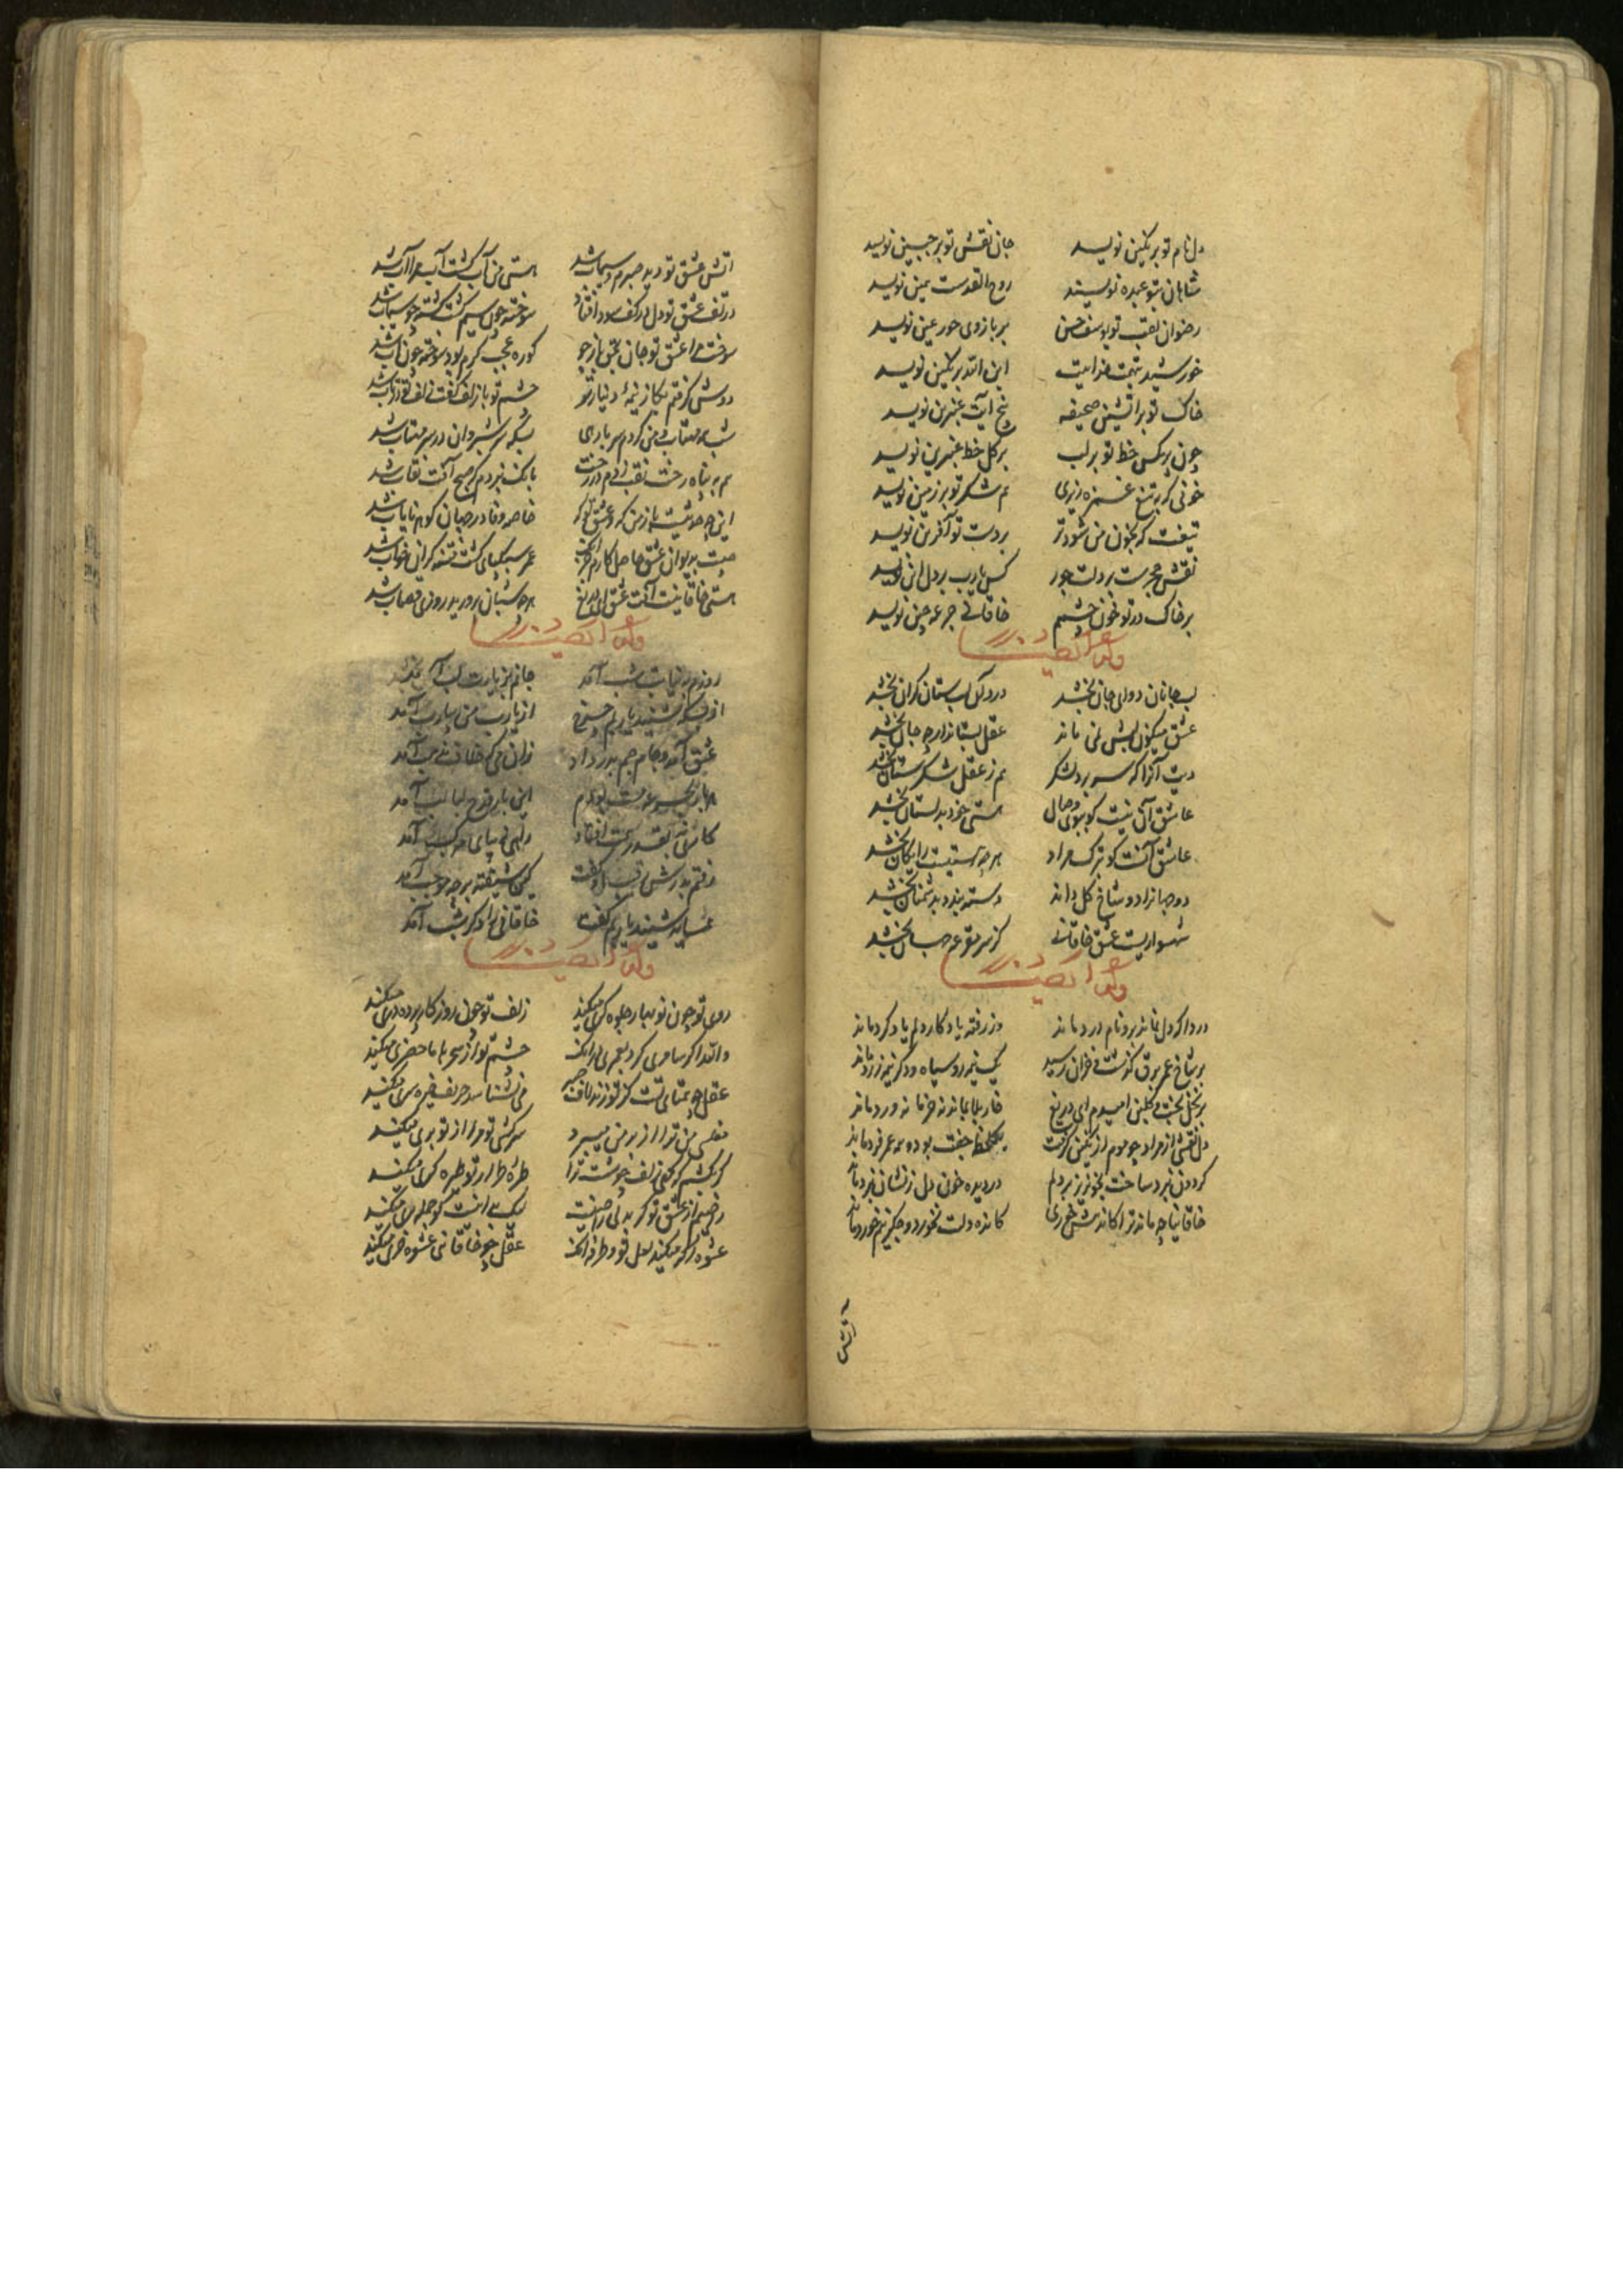 دل نام تو بر نگین نویسد جان نقش تو بر جبین نویسد
شاهان بتو عبده نویسند روح القدست بمین نویسد
رضوان لقب تو یوسف حسن بر بازوی حور عین نویسد
خورشید بتهمت خداییت ابن الله بر نگین نویسد
خاک تو بر آتشین صحیفه پنج آیت عنبرین نویسد
چون خط تو بر لب بر گل خط عنبرین نویسد
خونی که بتیغ غمزه ریزی هم شکر تو بر زمین نویسد
تیغت که بخون من شود تر بر دست تو آفرین نویسد
نقش حجرست بر دلت جور کس یارب بر دل این نویسد
بر خاک در تو خون چشمم خاقانی جرعه چین نویسد
وله ایضا
لب جانان دوای جان بخشد درد کز لب ستان کزان بخشد
عشق میگون لبش نمی ماند عقل بستاند ارچه جان بخشد
دیت آنرا که سر برد لشکر هم ز عقل شکرستان بخشد
عاشق آن نیست کو ببوی وصال هستی خود بدلستان بخشد
عاشق آنست کو بترک مراد هرچه هستیست رایگان بخشد
دوجهانرا دو شاخ گل داند دسته بندد بدشمنان بخشد
شهسواریست عشق خاقانی کز سر مقرعه جهان بخشد
وله ایضا
دردا که دل نماند برو نام درد ماند وز رفته یادگار دلم یاد کرد ماند
بر شاخ عمر برق گذشت خزان رسید یک نیمه رو سیاه و دگر نیمه زرد ماند
بر نخل بخت گلبن امیدم ای دریغ خار بلا بماند نه خرما نه ورد ماند
دل نقشی از مراد چو موم از نگین گرفت یکلحظه جفت بود و همه عمر فرد ماند
گردون نبرد ساخت بخونریز بر دلم در دیده خون دل ز نشان نبرد ماند
خاقانیا چه ماند ترا کانده خوری کانده دلت بخورد و جگر نیم خورد ماند
آتش
آتش عشق تو دید صبرم و سیماب شد هستی من آب گشت آب مرا آب شد
در تف عشق تو دل در کف سودا فتاد سوخته چون سیم گشت کشته چو سیماب شد
سوخت مرا عشق تو جان بحق باز جو کوره عجب گرم بود سوخته چون ناب شد
دوش گرفتم بگاز نیمه دینار تو چشم تو با زلف گفت زلف تو در تاب شد
شب مهتاب من کردم سر بازی بسکه سر شبروان در سر مهتاب شد
هم به پناه رخت نقب زدم در رخت بانک بزد مر که صبح آفت نقاب شد
این چه حدیثست باز من که و عشق تو که خاصه وفا در جهان گوهر نایاب شد
هست بدیوان عشق حاصل کارم عمر سبکپای گشت فتنه گران خواب شد
هستی خاقانیست آفت عشق ای دریغ هرچه شبان پرورید روزی قصاب شد
وله ایضا
روزم به نیابت شب آمد جانم بزیارت لب آمد
از بسکه شنید یاربم چرخ از یارب من بیارب آمد
عشق آمد و جام جم بدرداد زان می که خلاف مذهب آمد
هر بار بجرعه مست بودم این بار قدح لبالب آمد
کاری نه بقدر همت افتاد راهی نه بپای مرکب آمد
رفتم بدرش رقیب او گفت کین شیفته بر چه موجب آمد
همسایه شنید یاربم گفت خاقانی را دگر شب آمد
وله ایضا
روی تو چون نوبهار جلوه گری میکند زلف تو چون روزگار پرده دری میکند
والله اگر سامری کرد بعمری آنک چشم تو از سحر با ما حضری میکند
عقل چه همتای تست کز تو زند لاف می نشناسد حریف خیره سری میکند
مفلسی من ترا از بر من میبرد سرکشی تو مرا از تو بری میکند
گر بکشم که گهی زلف چو شست ترا طره طرار تو طره گری میکند
زخم از عشق تو گر بدلی راضیست لیک بد انست کو حیله گری میکند
عشوه گری میکند لعل تو و طرفه آنک عقل چو خاقانی عشوه خری میکند